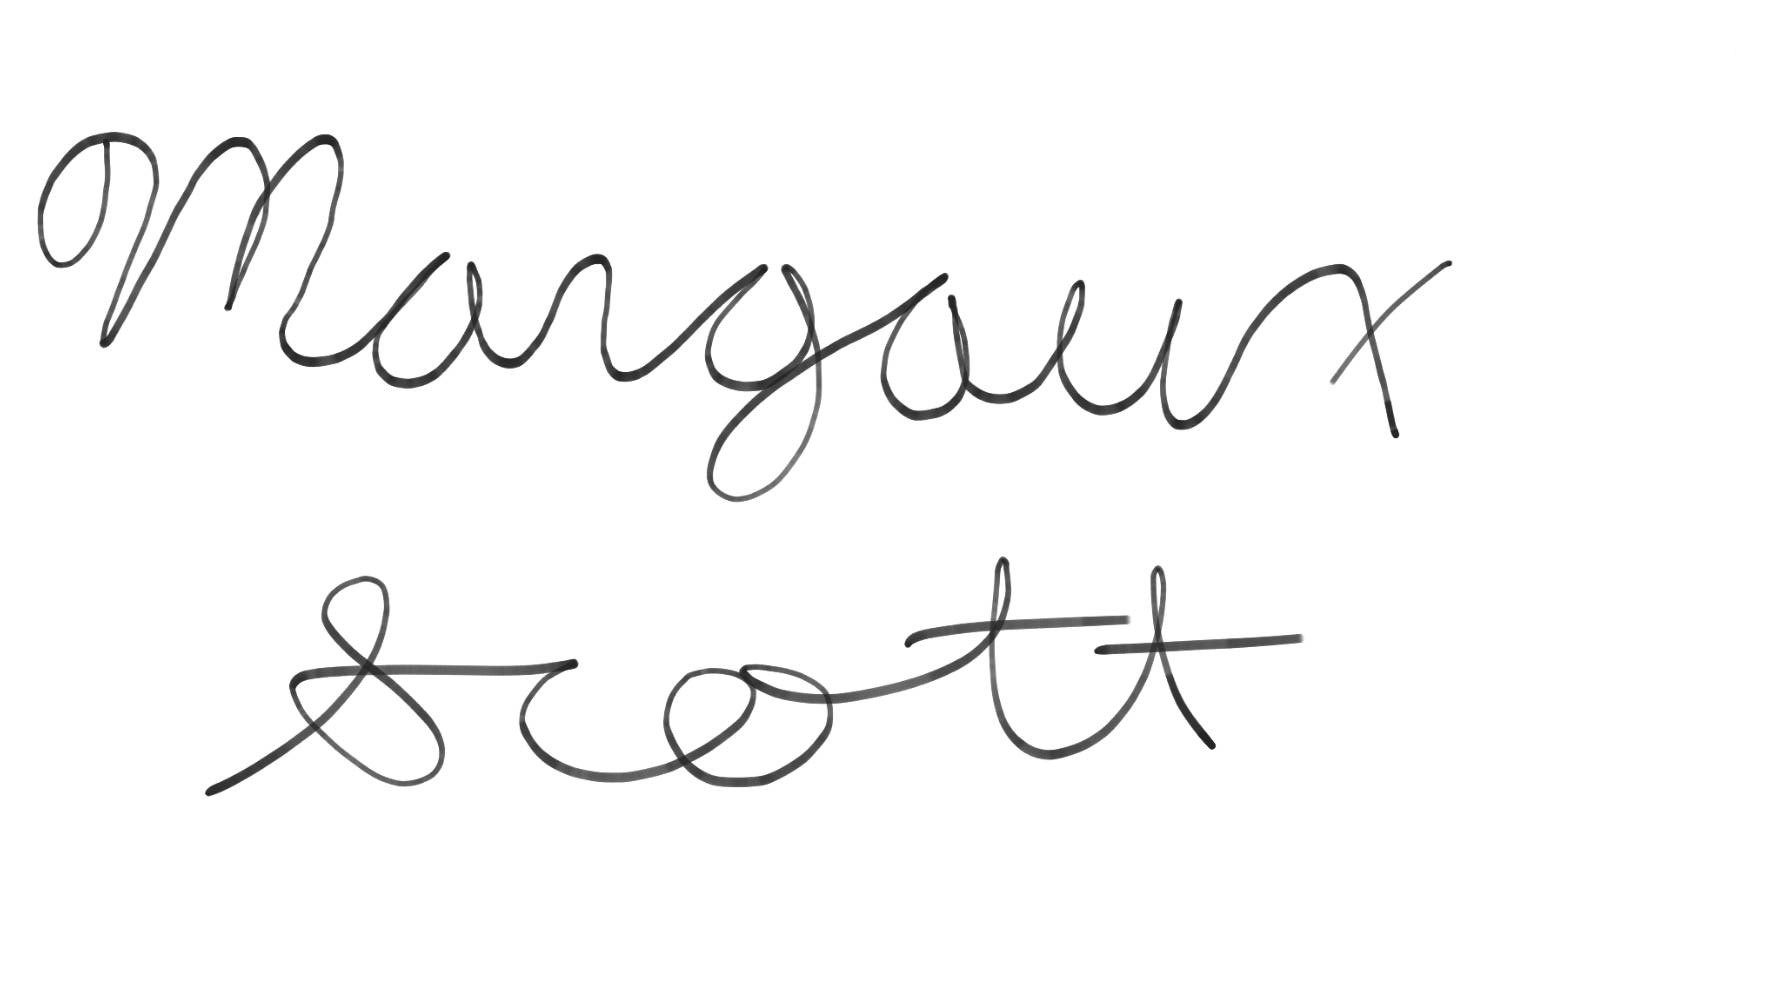 Margaux
Scott